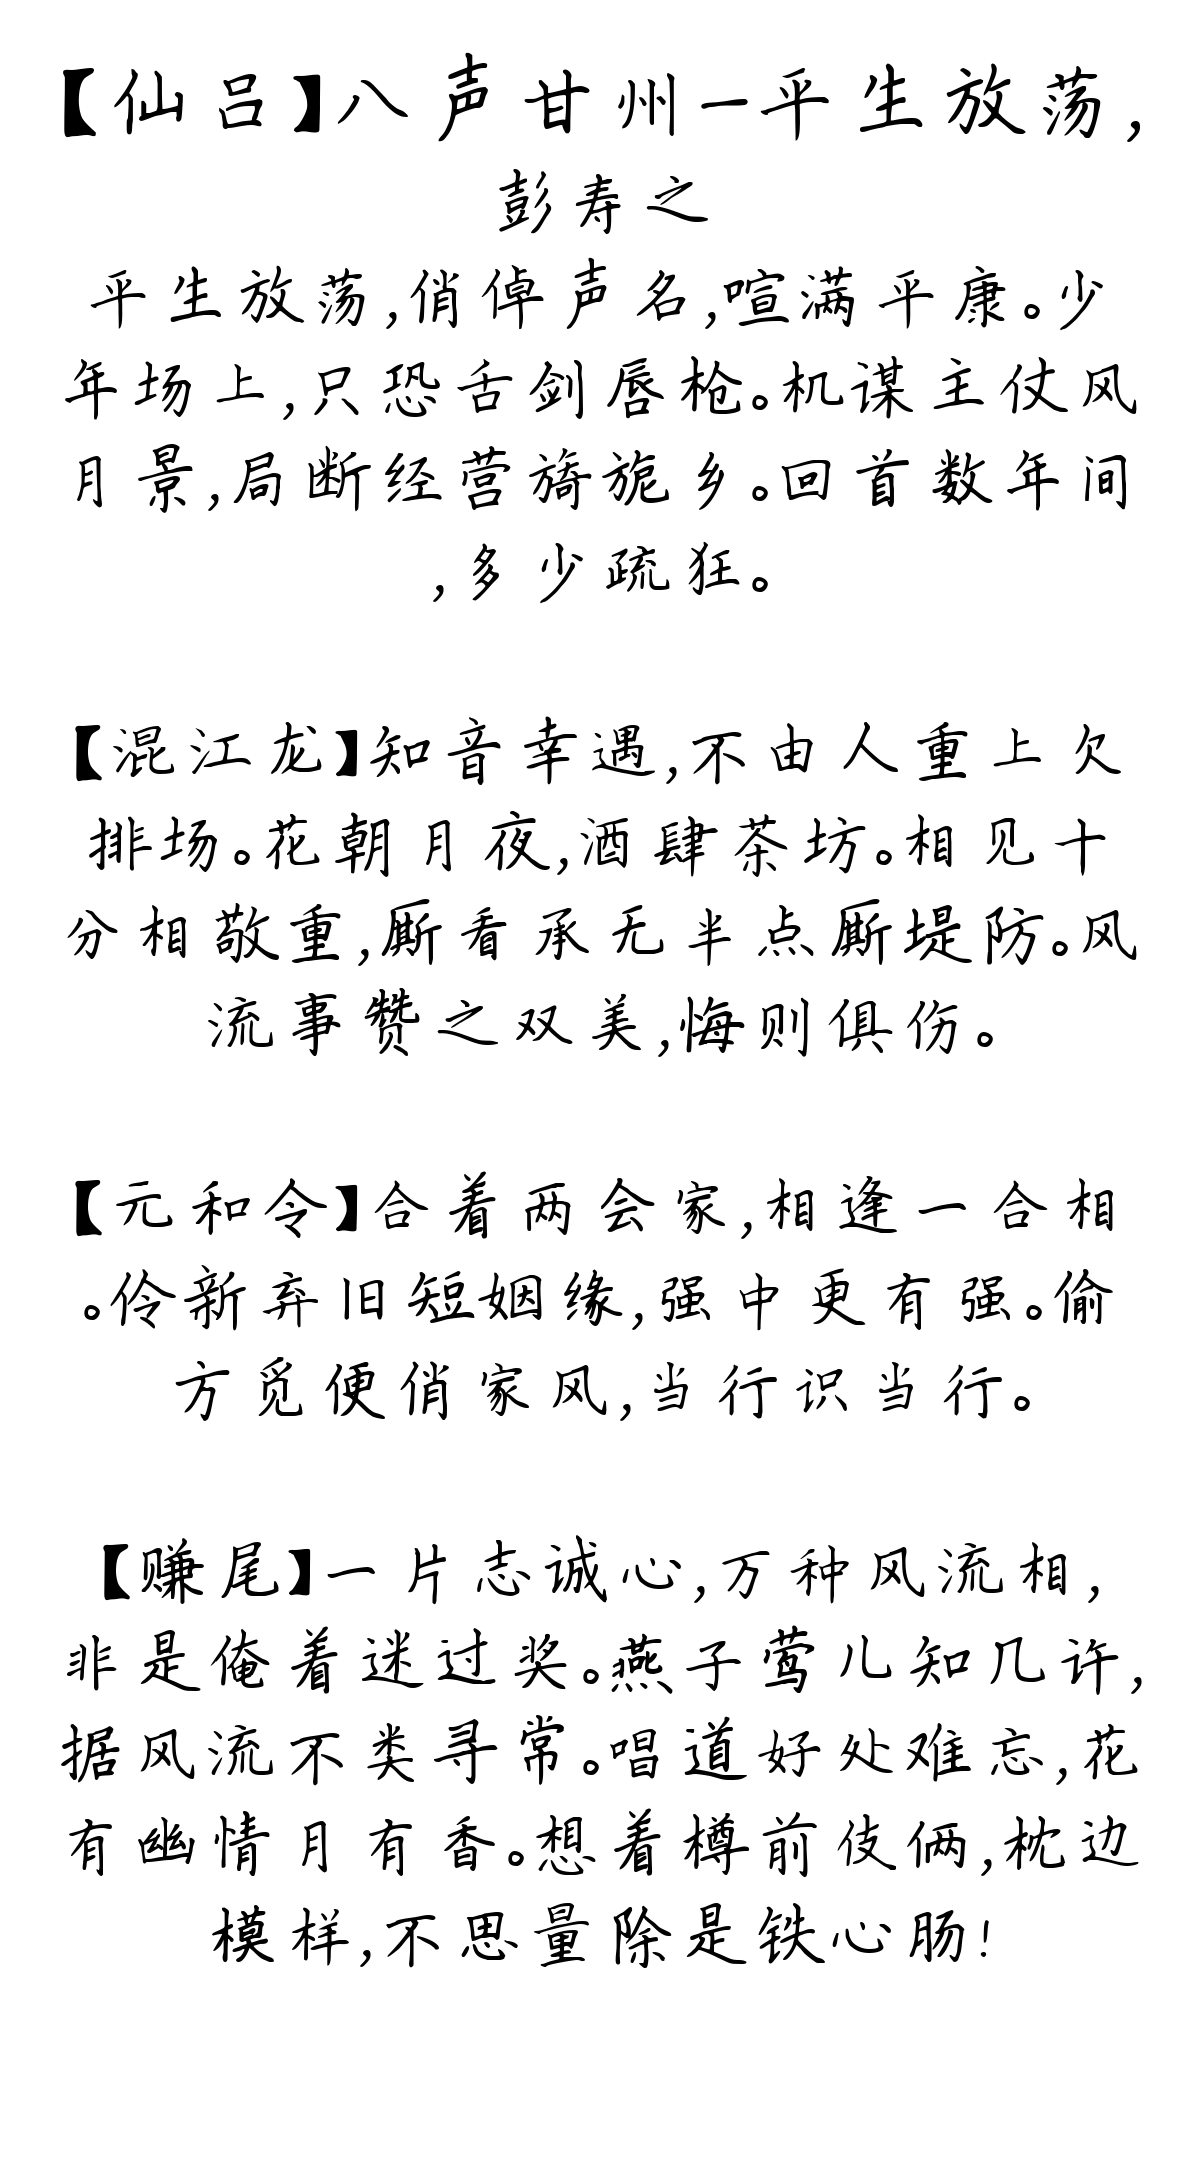 【仙吕】八声甘州-平生放荡,
彭寿之
平生放荡,俏倬声名,喧满平康。少
年场上,只恐舌剑唇枪。机谋主仗风
月景,局断经营旖旎乡。回首数年间
,多少疏狂。
【混江龙】知音幸遇,不由人重上欠
排场。花朝月夜,酒肆茶坊。相见十
分相敬重,厮看承无半点厮堤防。风
流事赞之双美,悔则俱伤。
【元和令】合着两会家,相逢一合相
。伶新弃旧短姻缘,强中更有强。偷
方觅便俏家风,当行识当行。
【赚尾】一片志诚心,万种风流相,
非是俺着迷过奖。燕子莺儿知几许,
据风流不类寻常。唱道好处难忘,花
有幽情月有香。想着樽前伎俩,枕边
模样,不思量除是铁心肠!